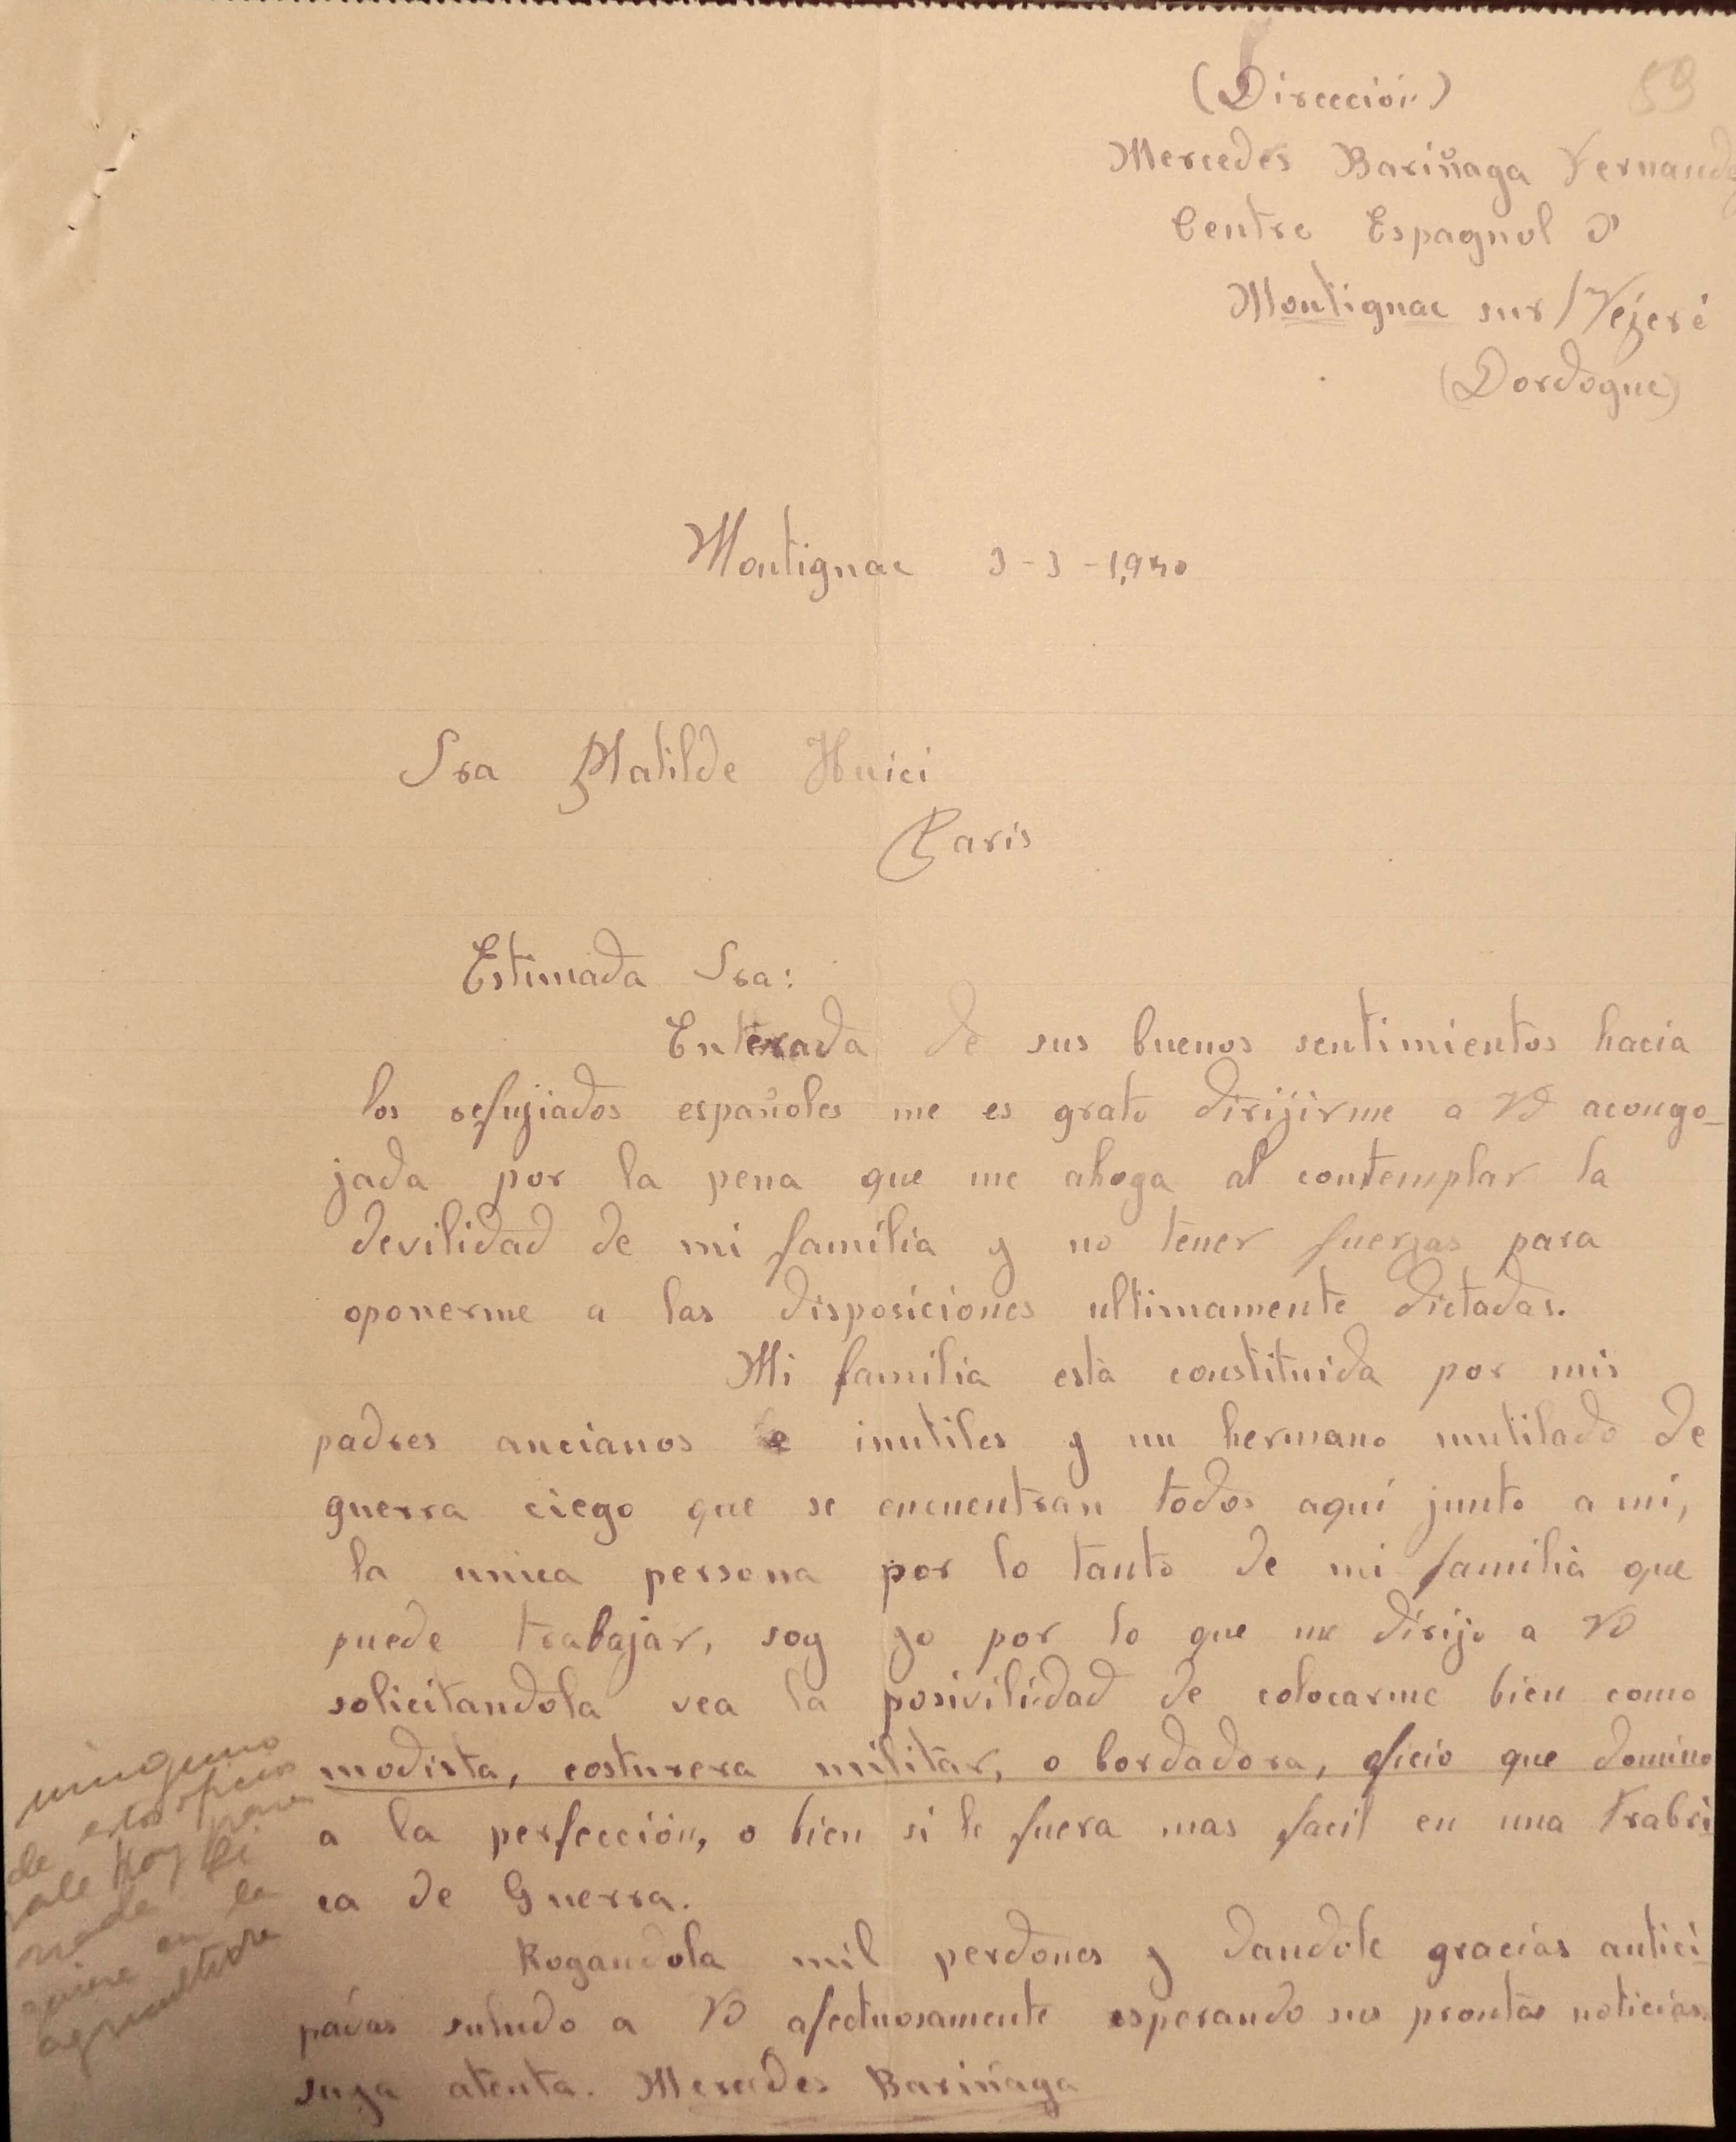 59
(Dirección)
Mercedes Bariñaga Fernandez
Centre Espagnol d'
Montignac sur / Vejeré
(Dordogne)
Montignac 3-3-1,940
Sra Matilde Huici
Paris
Estimada Sra:
Enterada de sus buenos sentimientos hacia
los refujiados españoles me es grato dirijirme a VD acongo-
jada por la pena que me ahoga al contemplar la
devilidad de mi familia y no tener fuerzas para
oponerme a las disposiciones ultimamente dictadas.
Mi familia està constituida por mis
padres ancianos e inutiles y un hermano mutilado de
guerra ciego que se encuentran todos aqui junto a mi,
la unica persona por lo tanto de mi familia que
puede trabajar, soy yo por lo que me dirijo a VD
solicitandola vea la posivilidad de colocarme bien como
modista, costurera militar, o bordadora, oficio que domino
a la perfección, o bien si le fuera mas facil en una Frabri
ca de Guerra.
Rogandola mil perdones y dandole gracias antici-
padas saludo a VD afectuosamente esperando sus prontas noticias.
suya atenta. Mercedes Bariñaga
ninguno
de estos oficios
vale hoy para
nada
en la
agricultura